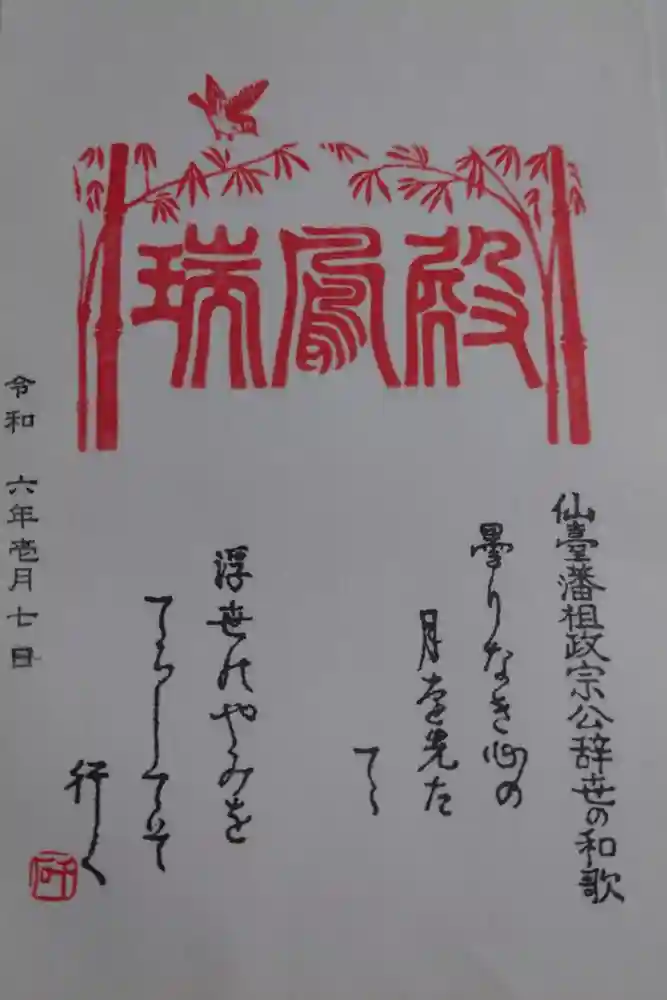 瑞鳳殿
仙臺藩祖政宗公辞世の和歌
曇りなき心の
月を先た
てゝ
浮世のやみを
てらしてそ
行く
令和 六年壱月七日